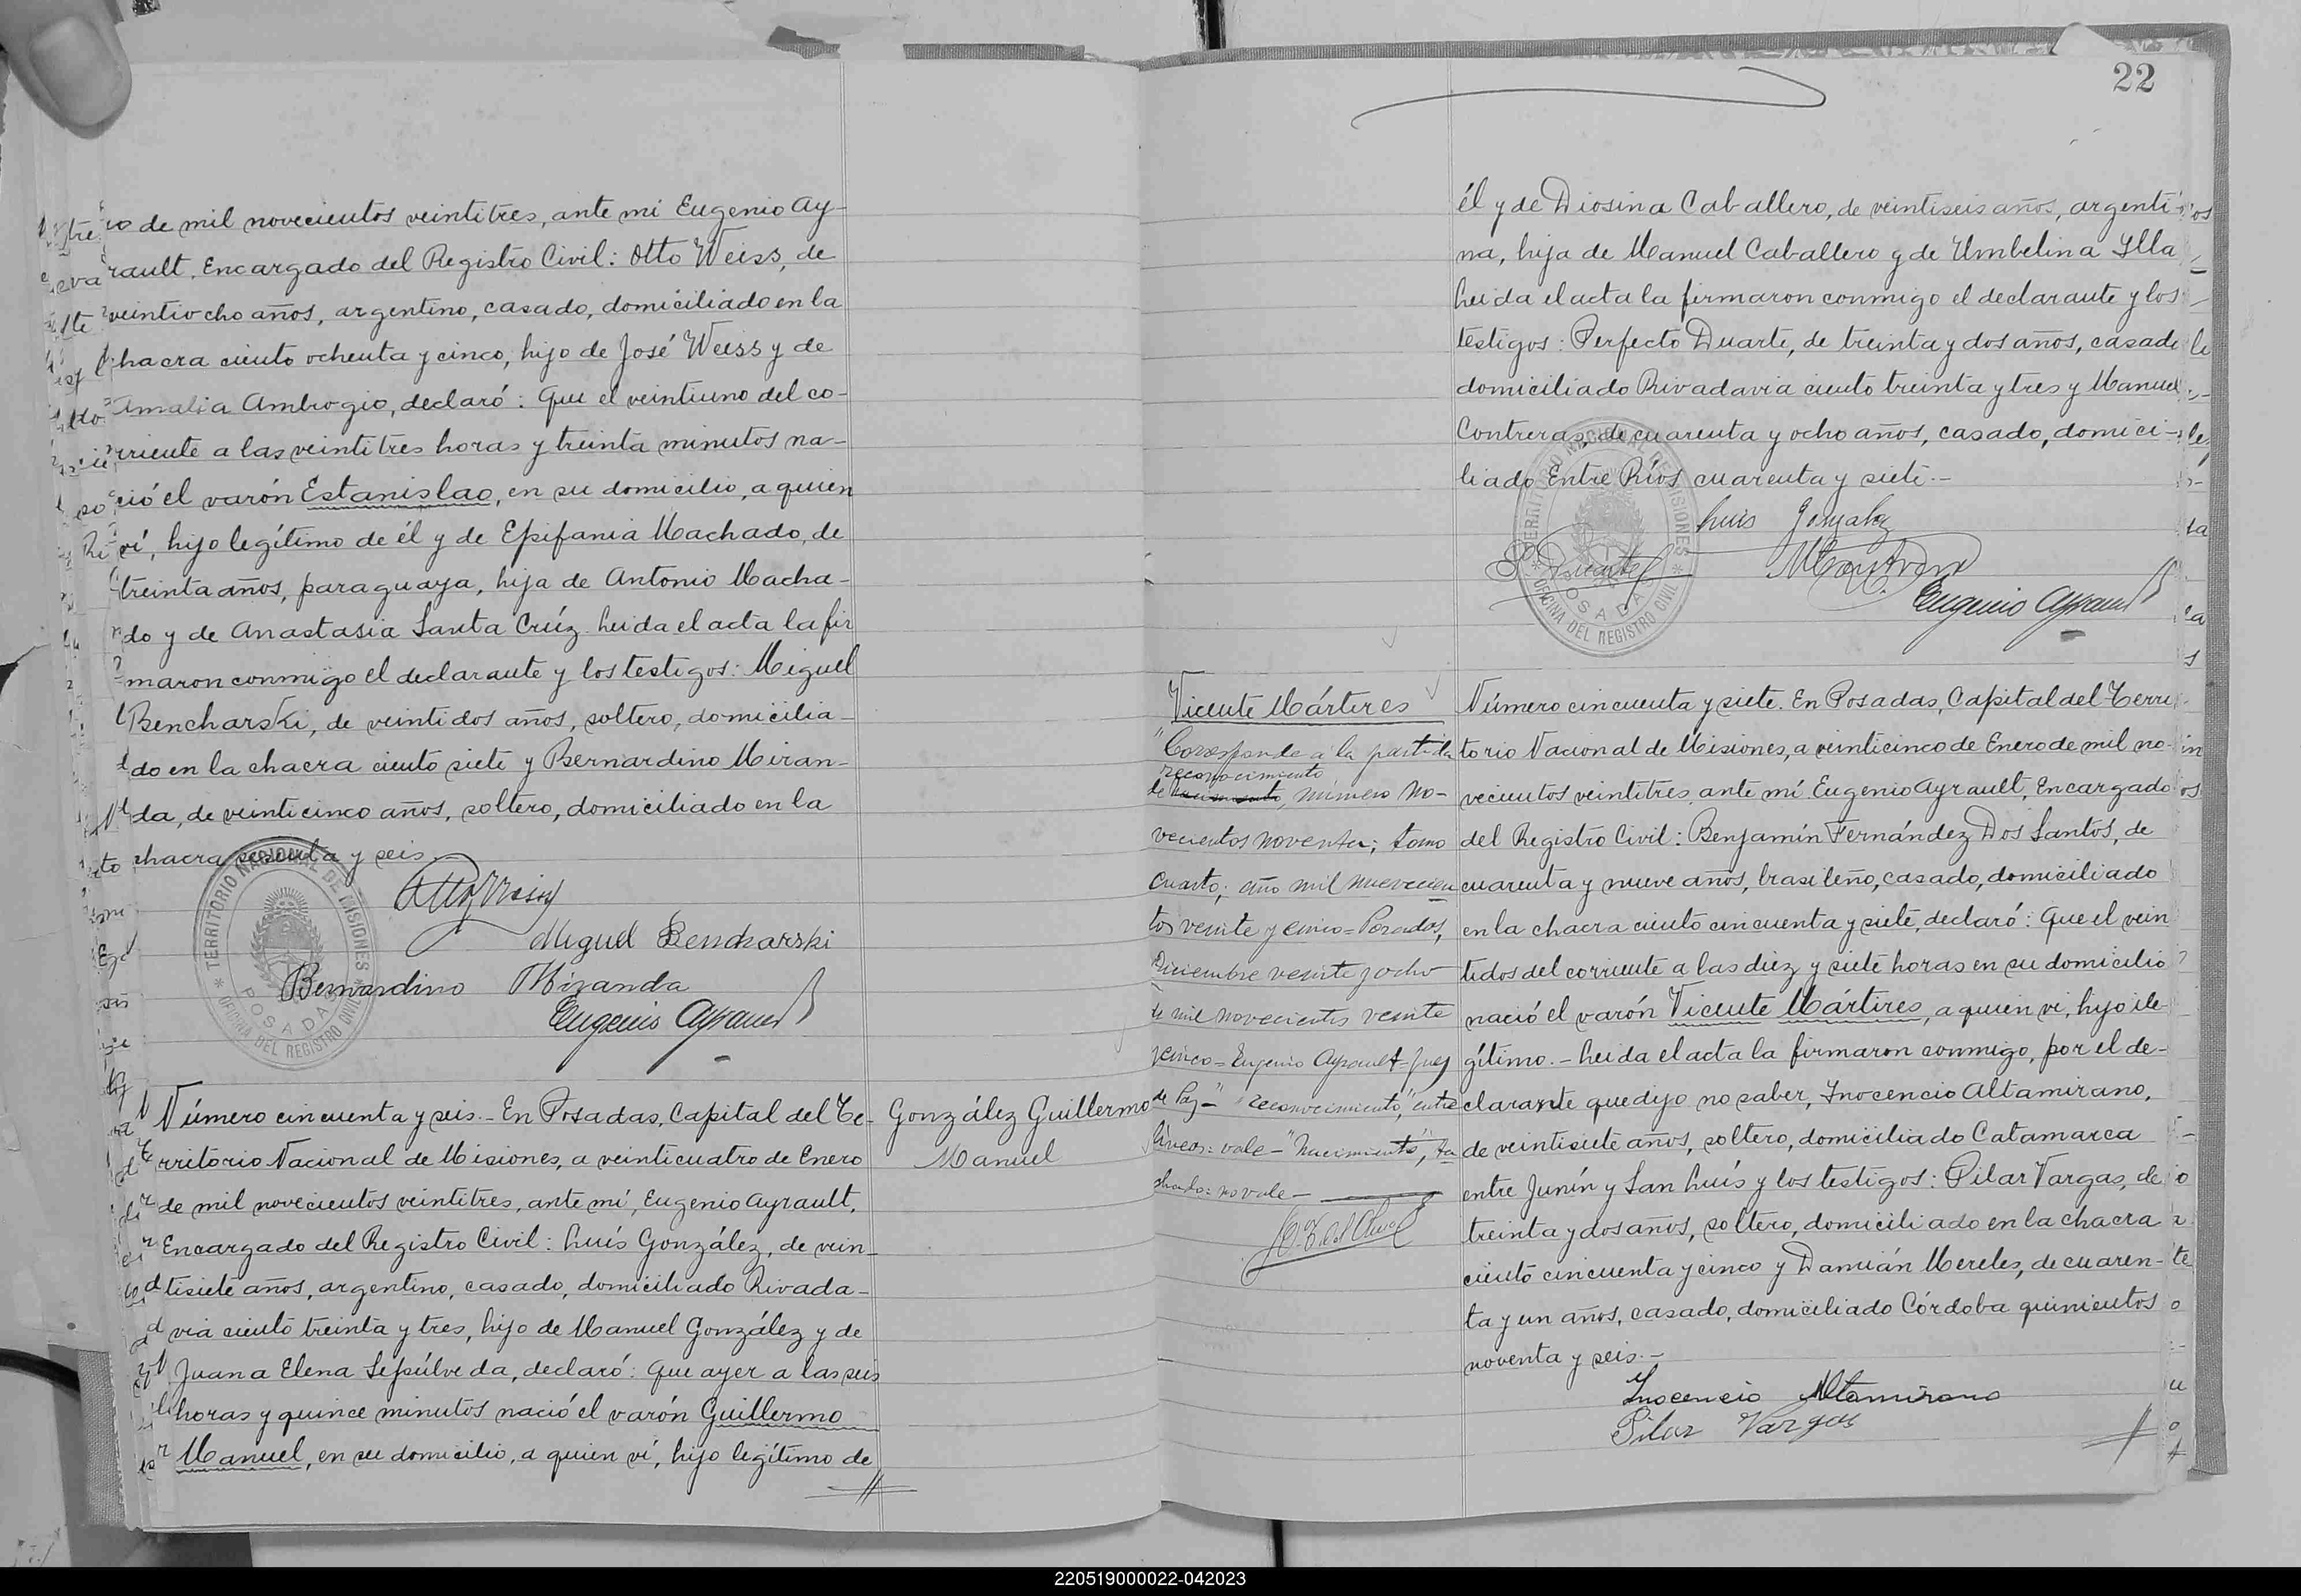 ro de mil novecientos veintitres, ante mí Eugenio Ay-
rault, Encargado del Registro Civil: Otto Weiss, de
veintiocho años, argentino, casado, domiciliado en la
chacra ciento ochenta y cinco, hijo de José Weiss y de
Amalia Ambrogio, declaró: Que el veintiuno del co-
rriente a las veintitres horas y treinta minutos na-
ció el varón Estanislao, en su domicilio, a quien
ví, hijo legítimo de él y de Epifania Machado, de
treinta años, paraguaya, hija de Antonio Macha-
do y de Anastasia Santa Cruz. Leida el acta la fir
maron conmigo el declarante y los testigos: Miguel
Bencharski, de veintidos años, soltero, domicilia-
do en la chacra ciento siete y Bernardino Miran-
da, de veinticinco años, soltero, domiciliado en la
chacra sesenta y seis.
Otto Weiss
Miguel Bencharski
Bernardino Miranda
Eugenio Ayrault
TERRITORIO NACIONAL DE MISIONES
POSADAS
OFICINA DEL REGISTRO CIVIL
Número cincuenta y seis.- En Posadas, Capital del Te-
rritorio Nacional de Misiones, a veinticuatro de Enero
de mil novecientos veintitres, ante mí, Eugenio Ayrault,
Encargado del Registro Civil: Luís González, de vein-
tisiete años, argentino, casado, domiciliado Rivada-
via ciento treinta y tres, hijo de Manuel González y de
Juana Elena Sepúlveda, declaró: Que ayer a las seis
horas y quince minutos nació el varón Guillermo
Manuel, en su domicilio, a quien ví, hijo legítimo de
González Guillermo
Manuel
22
él y de Diosina Caballero, de veintiseis años, argenti-
na, hija de Manuel Caballero y de Umbelina Ylla
Leida el acta la firmaron conmigo el declarante y los
testigos: Perfecto Duarte, de treinta y dos años, casado
domiciliado Rivadavia ciento treinta y tres y Manuel
Contreras, de cuarenta y ocho años, casado, domici-
liado Entre Ríos cuarenta y siete.-
Luis Gonzalez
P. Duarte
M Contreras
Eugenio Ayrault
TERRITORIO NACIONAL DE MISIONES
POSADAS
OFICINA DEL REGISTRO CIVIL
Vicente Mártires
"Corresponde a la partida
reconocimiento
de nacimiento, número no-
vecientos noventa; tomo
cuarto; año mil novecien
tos veinte y cinco = Posadas,
Diciembre veinte y ocho
de mil novecientos veinte
y cinco = Eugenio Ayrault - Juez
de Paz -" "reconocimiento," entre
líneas: vale - "Nacimiento", ta
chado: no vale -
Número cincuenta y siete. En Posadas, Capital del Terri
torio Nacional de Misiones, a veinticinco de Enero de mil no-
vecientos veintitres, ante mí Eugenio Ayrault, Encargado
del Registro Civil: Benjamín Fernández Dos Santos, de
cuarenta y nueve años, brasileño, casado, domiciliado
en la chacra ciento cincuenta y siete, declaró: Que el vein
tidos del corriente a las diez y siete horas en su domicilio
nació el varón Vicente Mártires, a quien vi, hijo ile-
gítimo.- Leida el acta la firmaron conmigo, por el de-
clarante que dijo no saber, Inocencio Altamirano,
de veintisiete años, soltero, domiciliado Catamarca
entre Junín y San Luís y los testigos: Pilar Vargas, de
treinta y dos años, soltero, domiciliado en la chacra
ciento cincuenta y cinco y Damián Mereles, de cuaren-
ta y un años, casado, domiciliado Córdoba quinientos
noventa y seis.-
Inocencio Altamirano
Pilar Vargas
220519000022-042023